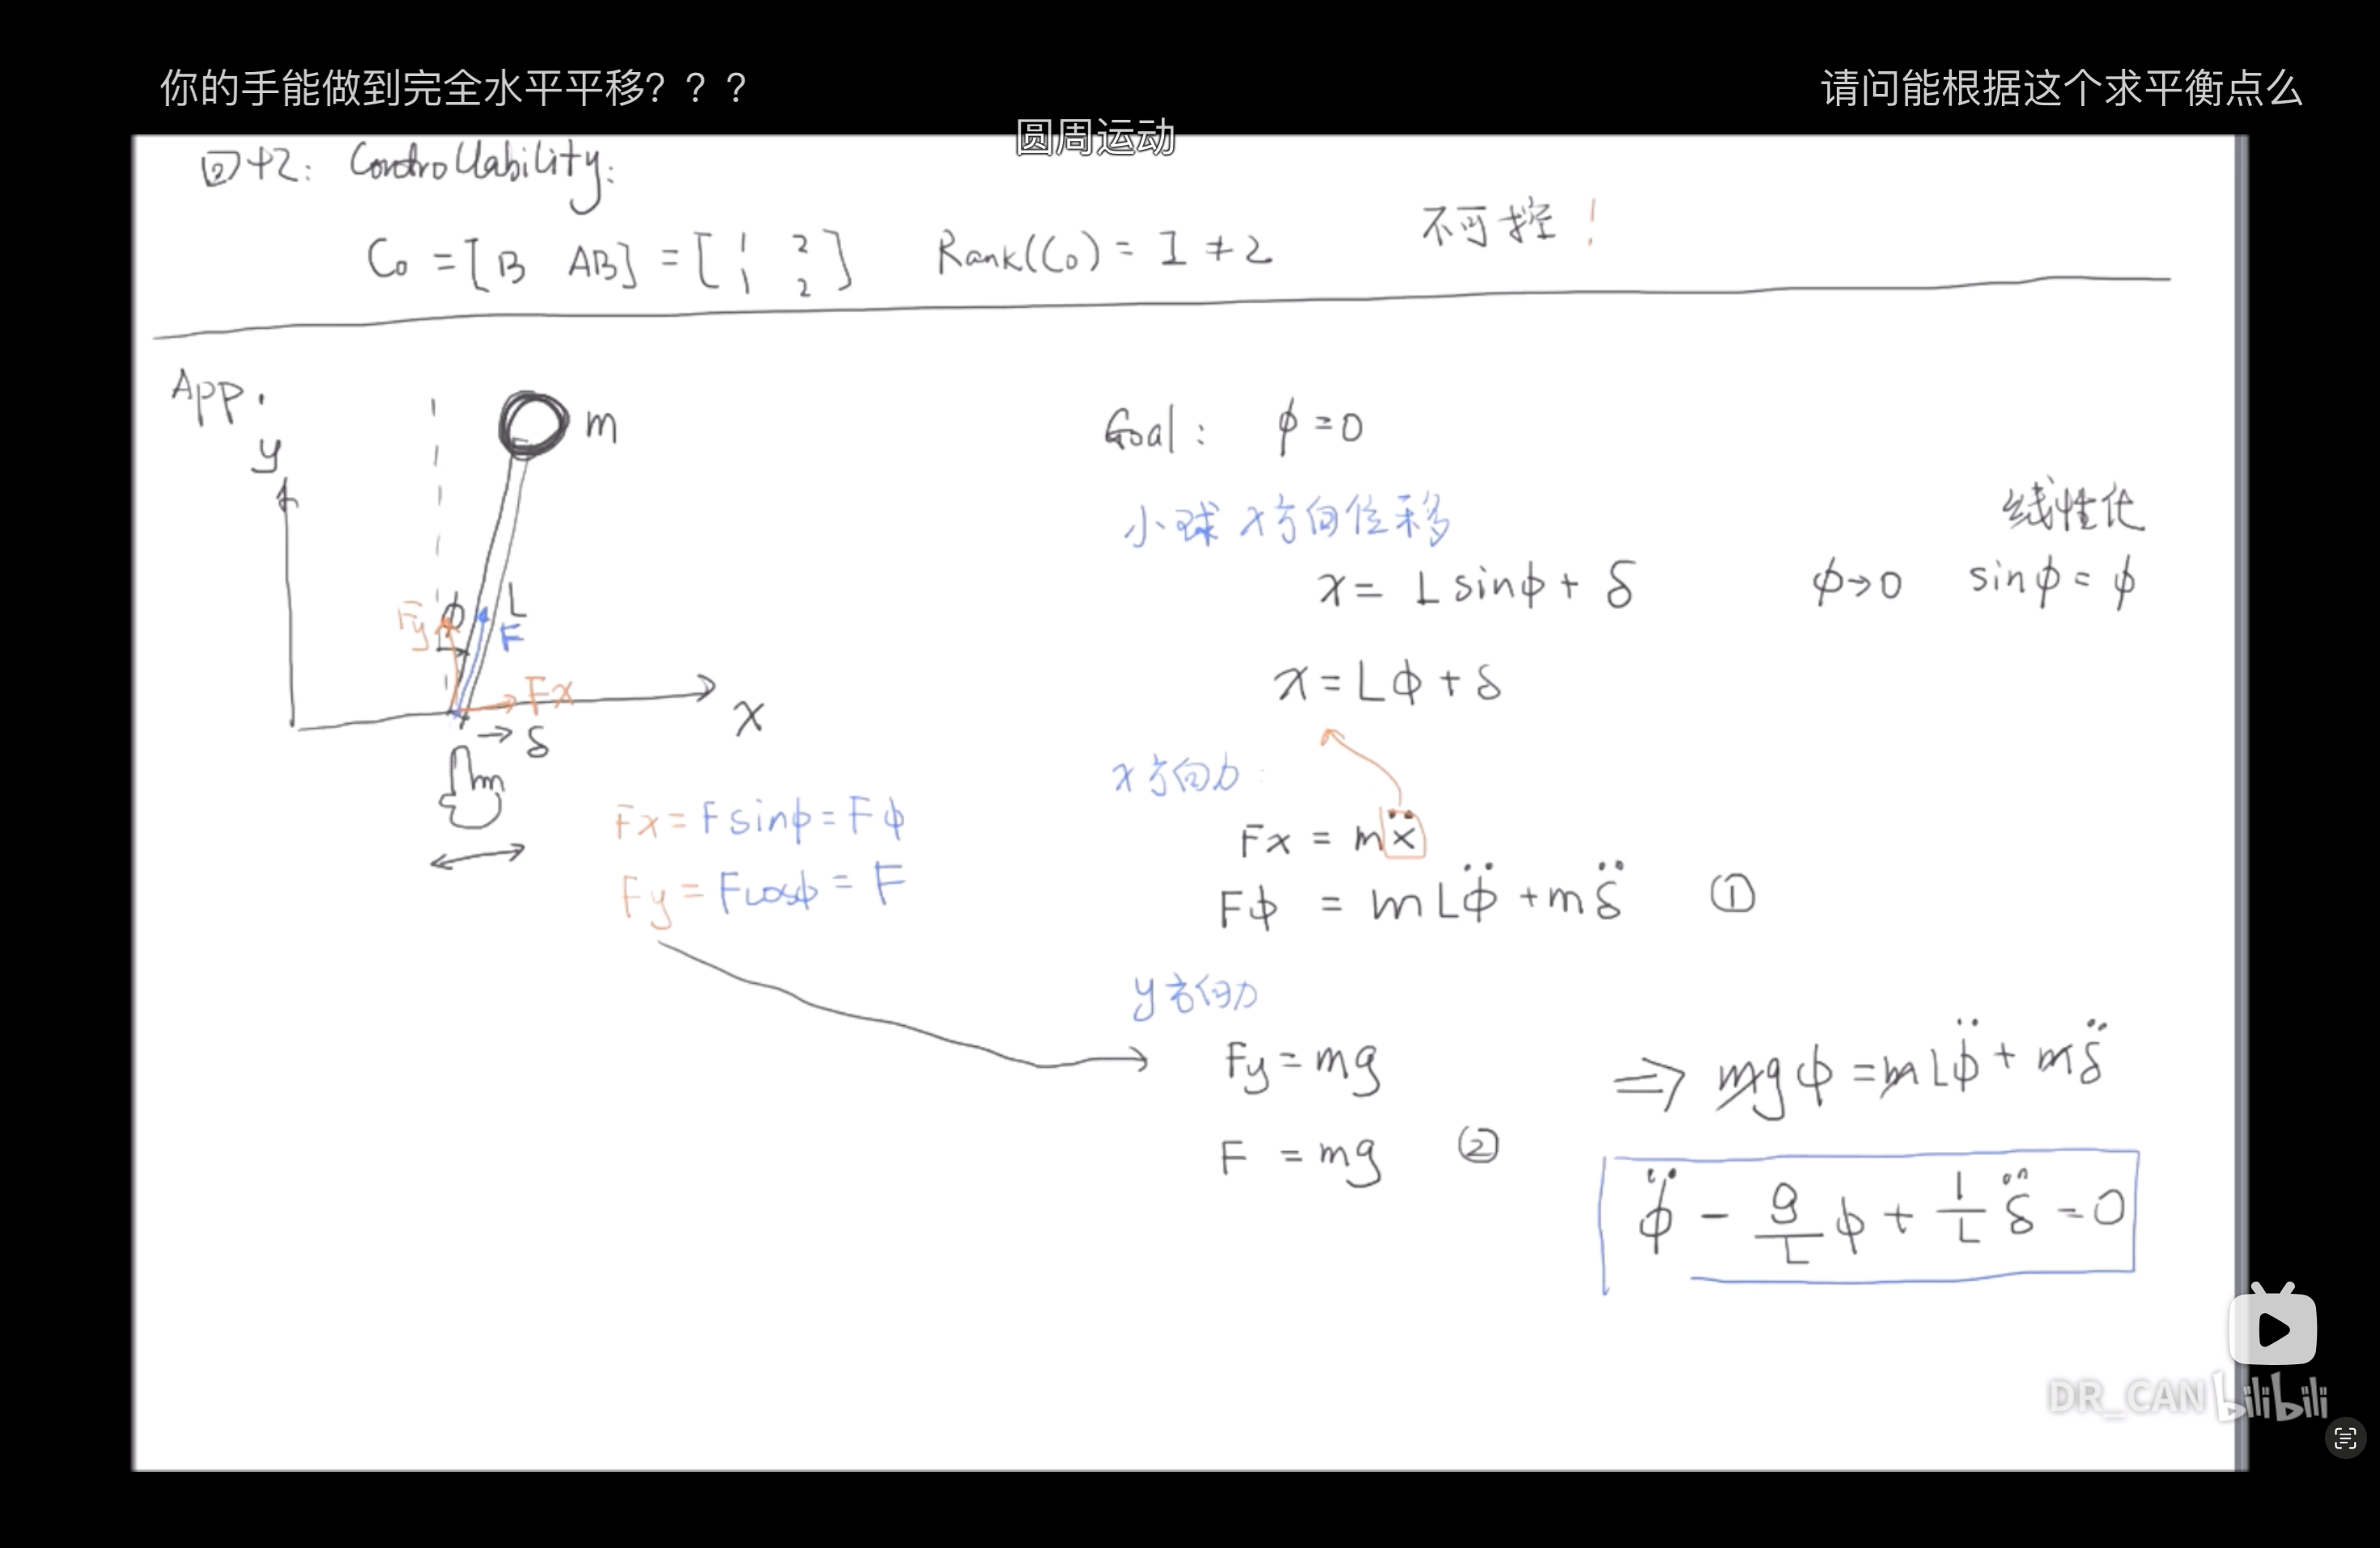 你的手能做到完全水平平移？？？
请问能根据这个求平衡点么
圆周运动
Controllability:
Co = [B AB] = [1 2; 1 2] Rank(Co) = 1 ≠ 2 不可控！
App.
y
m
φ
L
Fy
F
Fx
x
→ δ
Fx = F sinφ = Fφ
Fy = F cosφ = F
Goal: φ = 0
小球 x方向位移
线性化
x = L sinφ + δ φ→0 sinφ = φ
x = Lφ + δ
x方向力:
Fx = mẍ
Fφ = mLφ̈ + mδ̈ ①
y方向力
Fy = mg
⇒ mgφ = mLφ̈ + mδ̈
F = mg ②
φ̈ - g/L φ + 1/L δ̈ = 0
DR_CAN bilibili